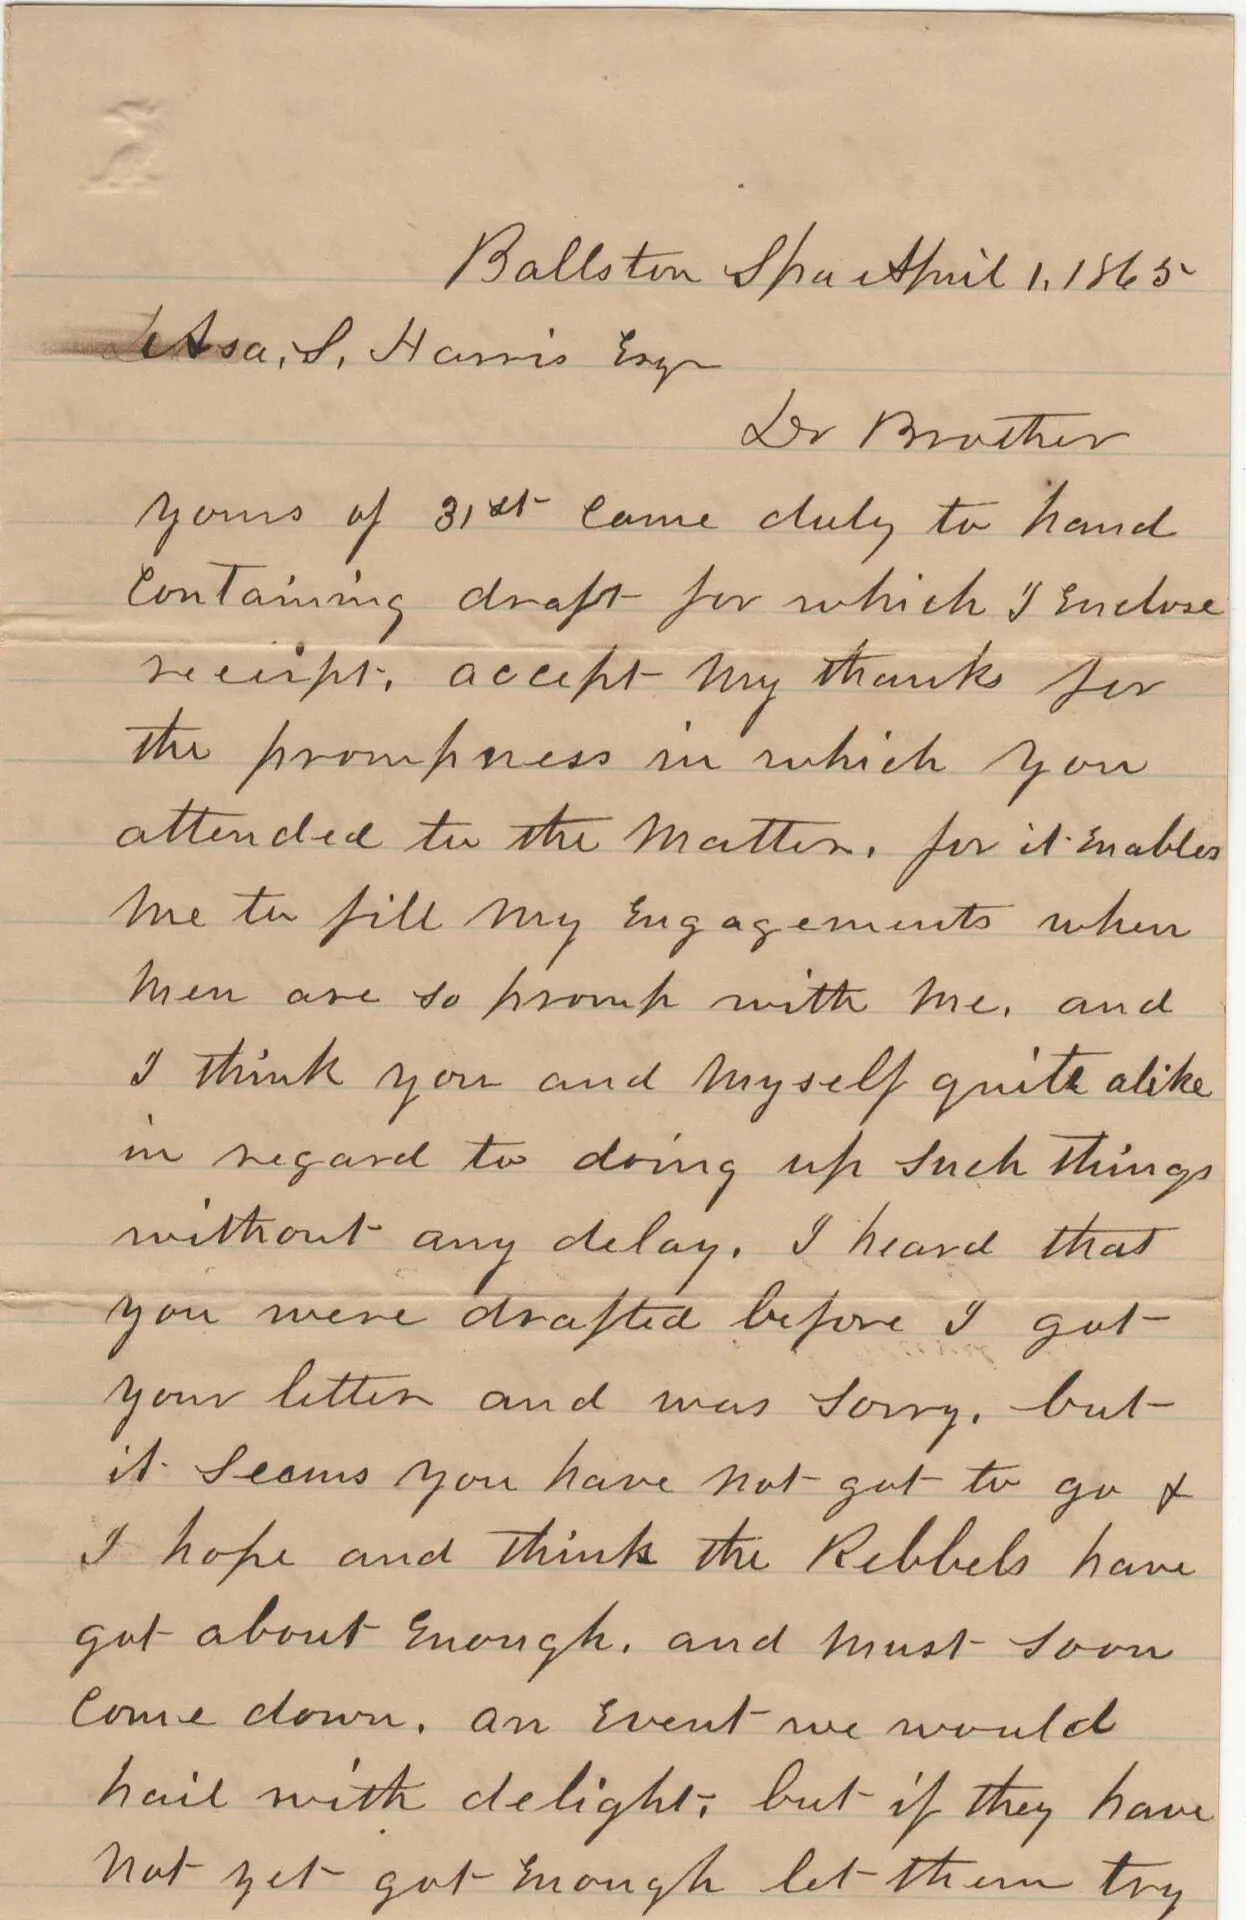 Ballston Spa April 1, 1865
Asa, S, Harris Esqr
Dr Brother
yours of 31st Came duly to hand
Containing draft for which I Enclose
receipt, accept My thanks for
the prompness in which you
attended to the Matter, for it Enables
Me to fill My Engagements when
Men are so promp with Me, and
I think you and Myself quite alike
in regard to doing up such things
without any delay, I heard that
you were drafted before I got
your letter and was sorry, but
it seems you have not got to go &
I hope and think the Rebbels have
got about Enough, and must soon
Come down, an Event we would
hail with delight, but if they have
not yet got Enough let them try